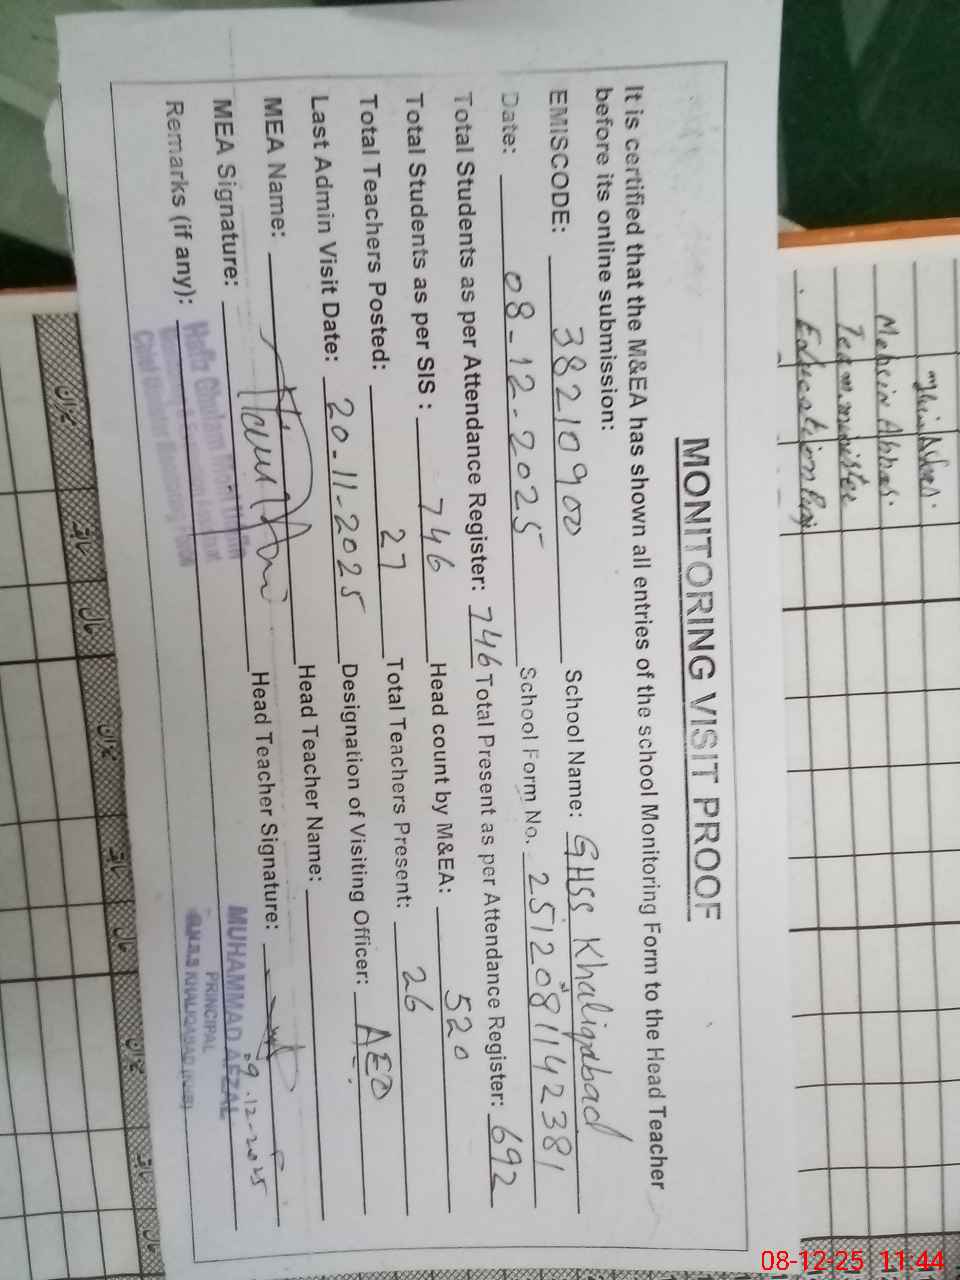 MONITORING VISIT PROOF
It is certified that the M&EA has shown all entries of the school Monitoring Form to the Head Teacher
before its online submission:
EMISCODE: 38210900 School Name: GHSS Khaliqabad
Date: 08-12-2025 School Form No. 2512081142381
Total Students as per Attendance Register: 746 Total Present as per Attendance Register: 692
Total Students as per SIS : 746 Head count by M&EA: 520
Total Teachers Posted: 27 Total Teachers Present: 26
Last Admin Visit Date: 20-11-2025 Designation of Visiting Officer: AEO
MEA Name: Head Teacher Name:
MEA Signature: Head Teacher Signature:
09-12-2025
Remarks (if any):
Hafiz Ghulam
MUHAMMAD AFZAL
PRINCIPAL
G.H.S.S KHALIQABAD
Mohsin Abbas
Education
08-12-25 11:44